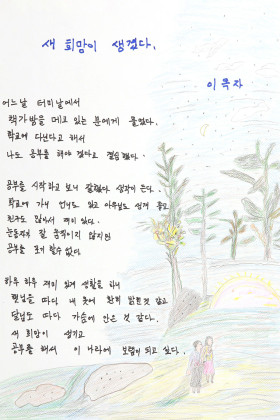 새 희망이 생겼다.
이 족자
어느날 터미날에서
책가방을 메고 있는 분에게 물었다.
학교에 다닌다고 해서
나도 공부를 해야 겠다고 결심했다.
공부를 시작하고 보니 잘했다 생각이 든다.
학교에 가니 언니도 있고 아우님도 생겨 좋고
친구도 많아서 재미 있다.
눈동자가 잘 움직이지 않지만
공부를 포기 할수 없다.
하루 하루 재미 있게 생활을 하니
햇님을 따다 내 옷에 환히 밝힌것 같고
달님도 따다 가슴에 안은 것 같다.
새 희망이 생기고
공부를 해서 이 나라에 보탬이 되고 싶다.